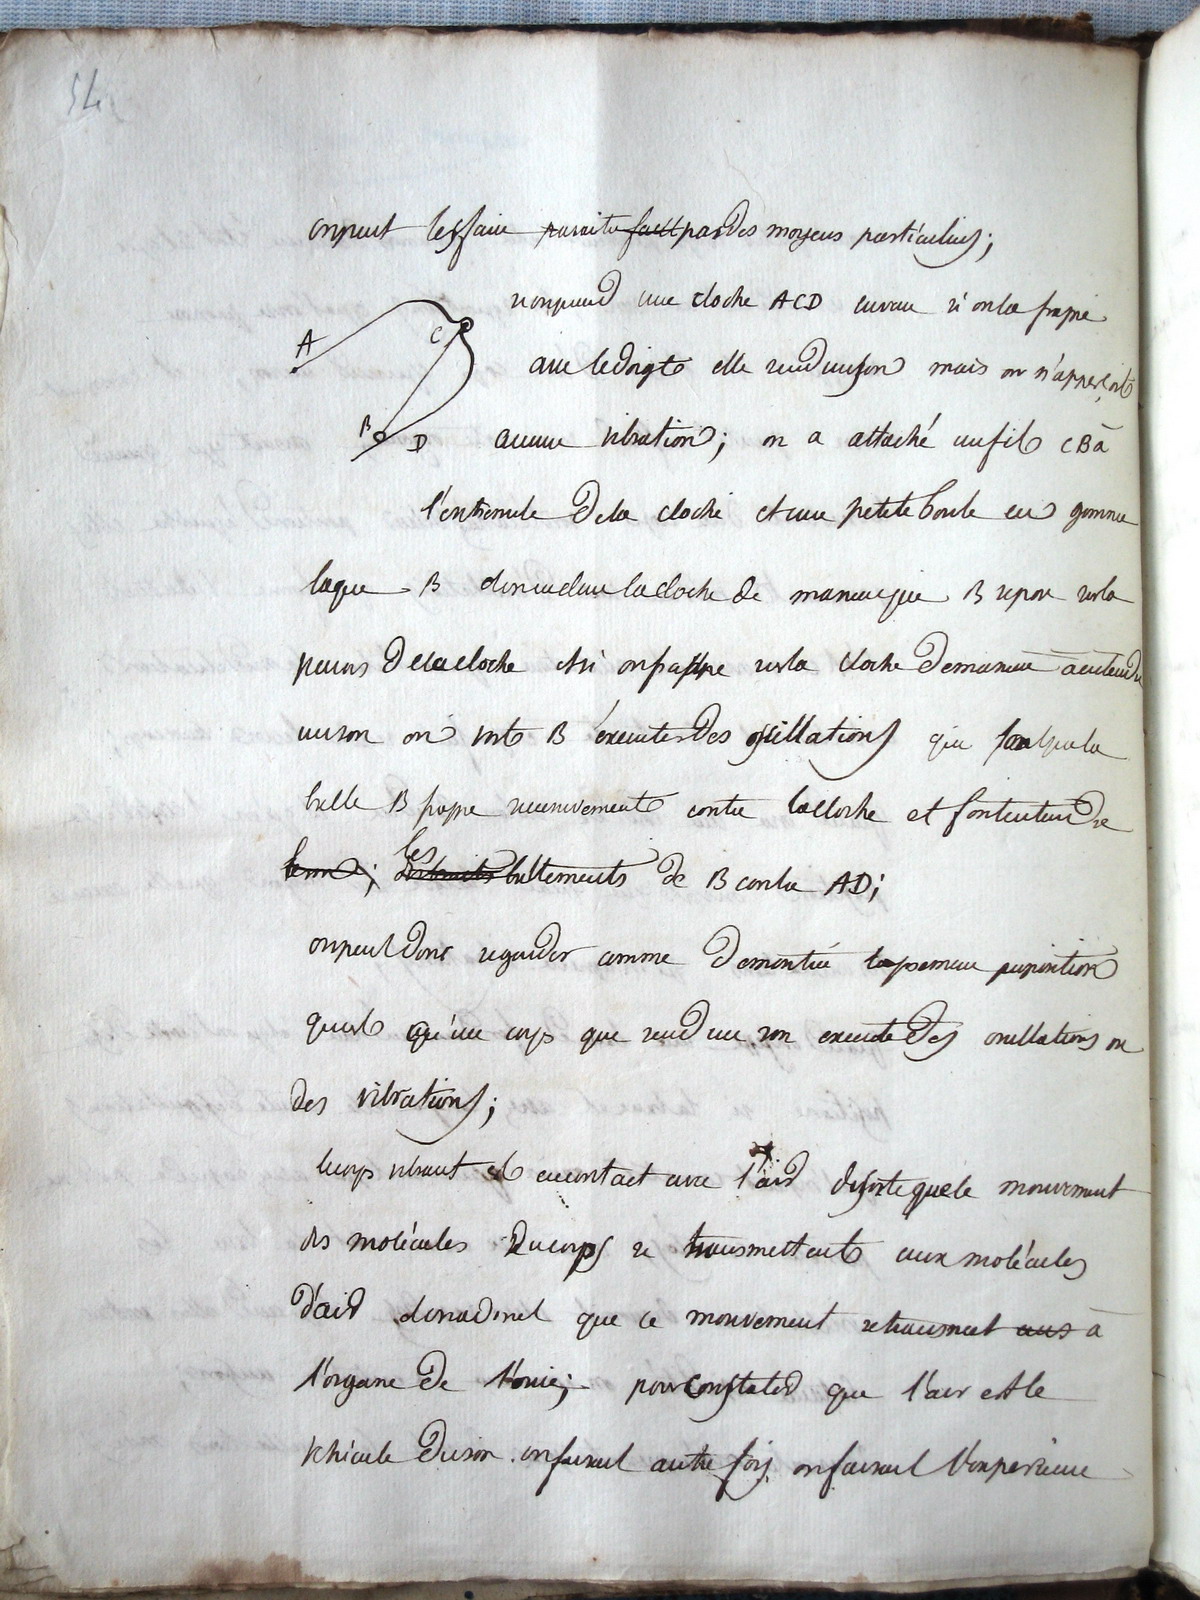 54
on peut les faire paraitre facil par des moyens particuliers;
si on prend une cloche ACD en verre si on la frappe
A
C
avec le doigt elle rend un son mais on n'apperçoit
B
D
aucune vibration; on a attaché un fil CB à
l'extremité de la cloche et une petite boule en gomme
laque B dans la cloche de maniere que B repose sur la
parois de la cloche et si on frappe sur la cloche de maniere a entendre
un son on voit B éxecuter des oscillations qui font que la
balle B frappe contre la cloche et font entendre
les battements de B contre AD;
on peut donc regarder comme demontrée la premiere proposition
qu'un corps que rend un son execute des oscillations ou
des vibrations;
le corps vibrant est en contact avec l'air de sorte que le mouvement
des molécules du corps se transmettent aux molécules
d'air donc que ce mouvement se transmet aux à
l'organe de l'ouie; pour constater que l'air est le
véhicule du son on faisait autre fois on faisait l'experience